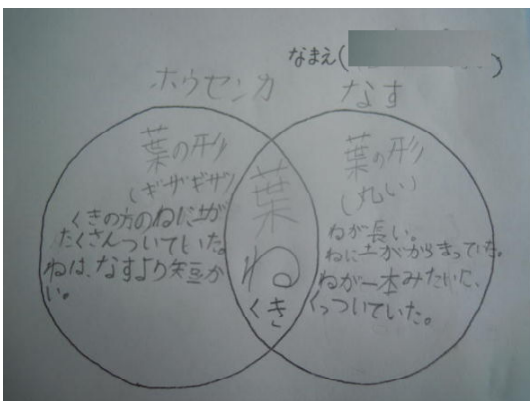 なまえ(
)
ホウセンカ
なす
葉の形
(ギザギザ)
くきの方のねに土が
たくさんついていた。
ねは、なすより短か
い。
葉
ね
くき
葉の形
(丸い)
ねが長い。
ねに土がからまっていた。
ねが一本みたいに、
くっついていた。